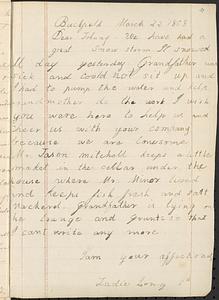 Buckfield March 22 1808
Dear Johny - We have had a
great Snow storm It snowed
all day yesterday Grandfather was
sick and could not sit up and
I had to pump the water and help
Grandmother do the work I wish
you were here to help us and
cheer us with your company
because we are lonesome
Mr. Jason mitchell keeps a little
market in the cellar under the
house where Mr. Minor lives
and keeps fish fresh and salt
Mackerel. Grandfather is lying on
the lounge and Grunts so that
I cant write any more
I am your affectionate
Long